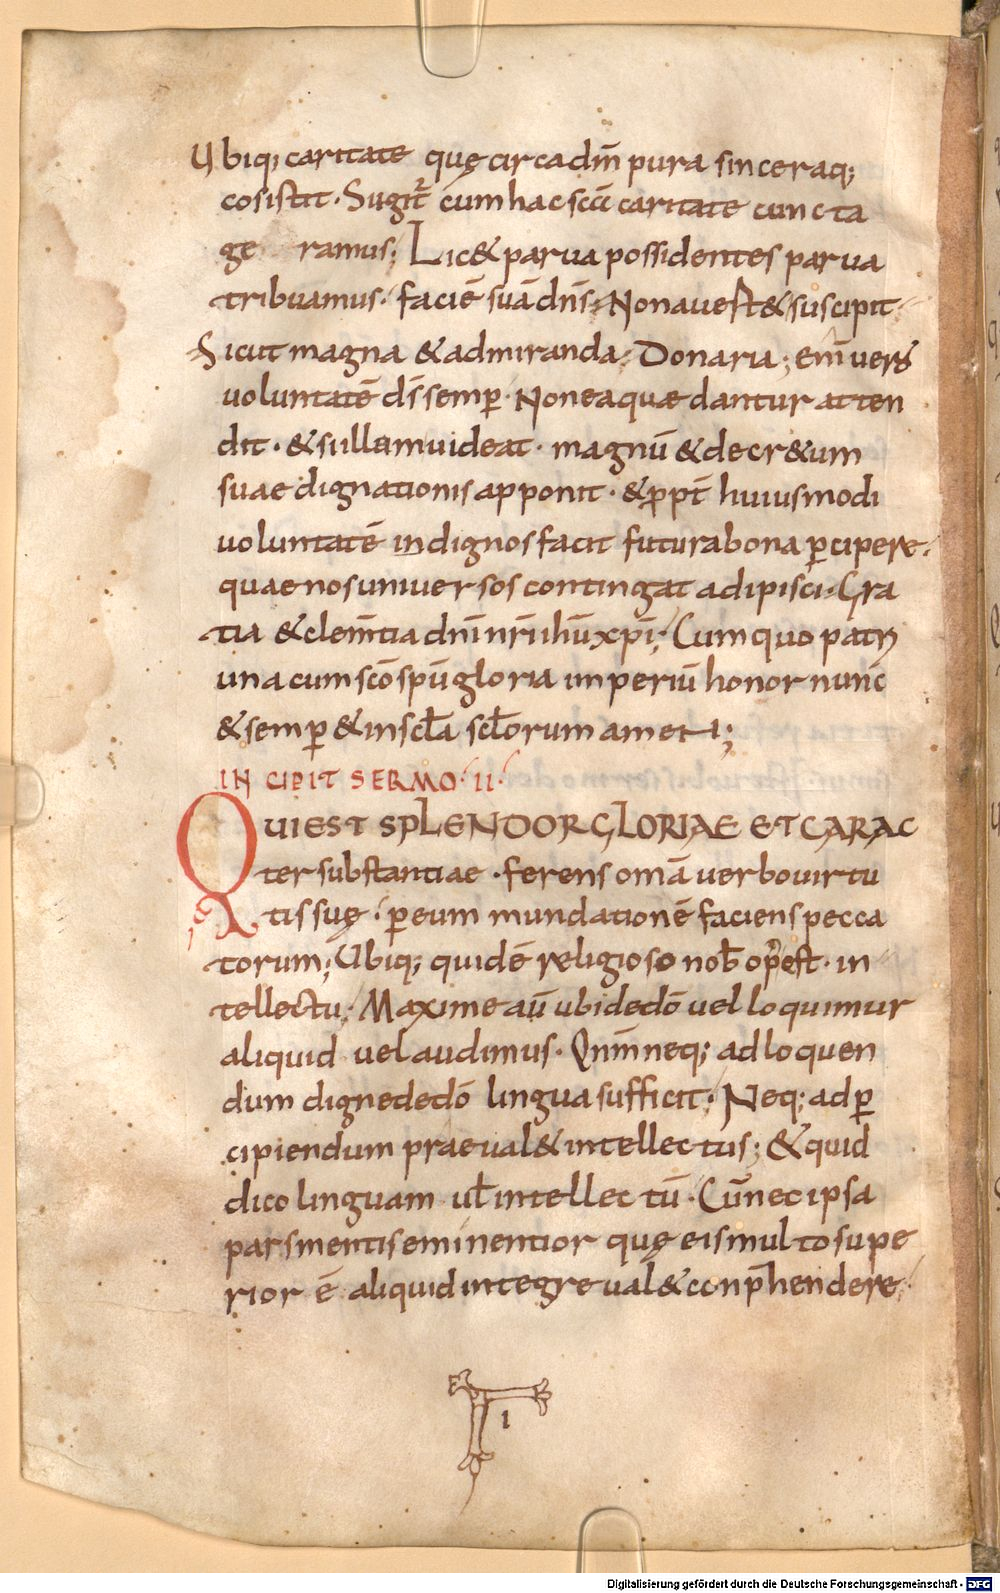 Ubiq; caritate quę circa dm̄ pura sinceraq;
cosistit · Sugit̄ cum hac scā caritate cuncta
ge ramus; Lic& parva possidentes parva
tribuamus · faciē suā dn̄s · Non avest& suscipit ·
Sicut magna & admiranda · Donaria; enī vers
voluntatē dī semp · Non ea quae dantur atten
dit · & si ullam videat · magnū & decr&um
suae dignationis apponit · & ꝓpt̄ huiusmodi
voluntatē indignos facit futura bona ꝑcipere ·
quae nos universos contingat adipisci · Gra
tia & clem̄tia dnī nrī ihū xpī; Cum quo patri
una cum scō spū gloria imperiū honor nunc
& semꝑ & in scła scłorum amen;
INCIPIT SERMO · II ·
QUI EST SPLENDOR GLORIAE ET CARAC
ter substantiae · ferens omā verbo virtu
tis suę · ꝑ eum mundationē faciens pecca
torum; Ubiq; quidē religioso nob op est · in
tellectu · Maxime aū ubi de dō vel loquimur
aliquid vel audimus · Qnm̄ neq; ad loquen
dum digne de dō lingua sufficit · Neq; ad ꝑ
cipiendum praeval& intellectus; & quid
dico linguam uł intellectū · Cū nec ipsa
pars mentis eminentior quę eis multo supe
rior ē aliquid integre val& conp̄hendere ·
I
Digitalisierung gefördert durch die Deutsche Forschungsgemeinschaft - DFG